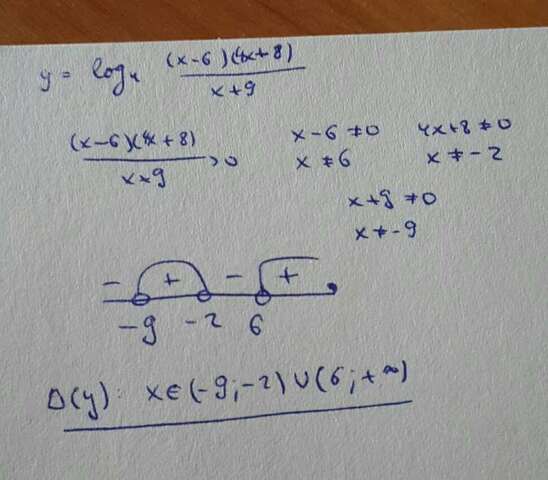 y = log₄ (x-6)(4x+8)/x+9
(x-6)(4x+8)/x+9 >0
x-6 ≠0 4x+8 ≠0
x ≠6 x ≠-2
x+9 ≠0
x ≠-9
- + - +
-9 -2 6
D(y): x∈(-9;-2)∪(6;+∞)